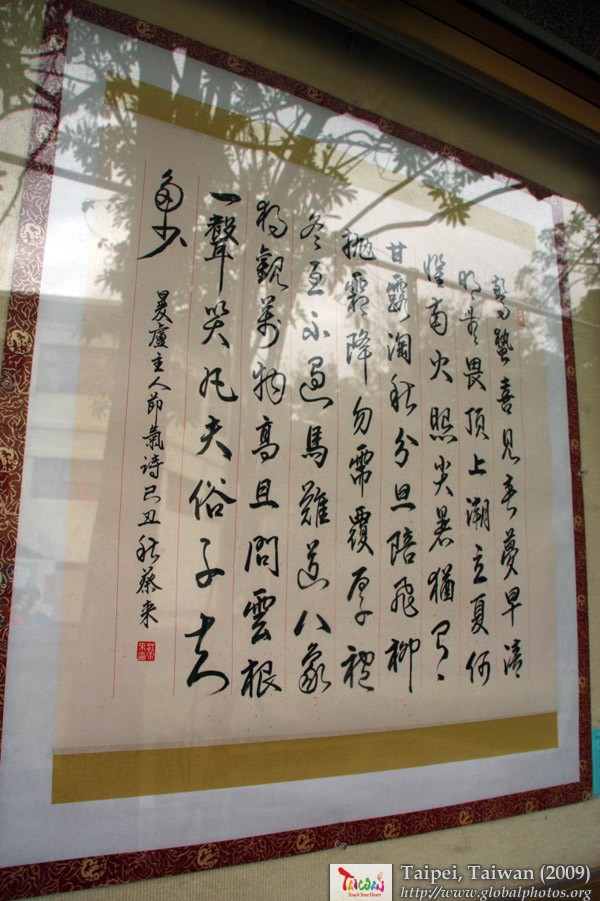 驚蟄喜見春夢早清
明 畏頂上潮立夏何
懼南火照 暑猶
甘露淘秋分且陪飛柳
拋霜降勿需覆厚
冬至不過馬難 八
獨觀萬物高且問雲根
一聲 凡夫俗子知
多少
廬主人節氣詩己丑秋蔡來
TAIWAN
Touch Your Heart
Taipei, Taiwan (2009)
http://www.globalphotos.org